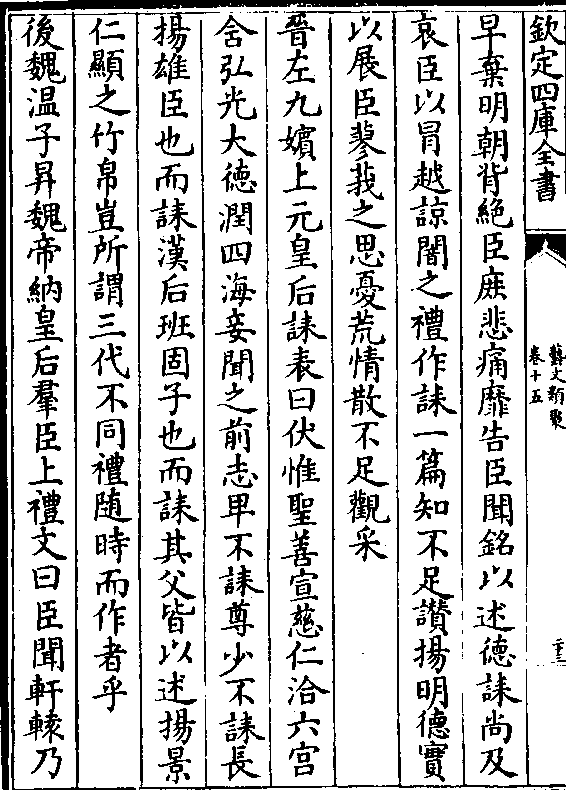 欽定四庫全書
藝文類聚
卷十五
二十三
早棄明朝背絶臣庶悲痛靡告臣聞銘以述德誄尚及
哀臣以冐越諒闇之禮作誄一篇知不足讃揚明德實
以展臣蓼莪之思憂荒情散不足觀采
晉左九嬪上元皇后誄表曰伏惟聖善宣慈仁洽六宫
含弘光大德潤四海妾聞之前志卑不誄尊少不誄長
揚雄臣也而誄漢后班固子也而誄其父皆以述揚景
仁顯之竹帛豈所謂三代不同禮随時而作者乎
後魏温子昇魏帝納皇后羣臣上禮文曰臣聞軒轅乃